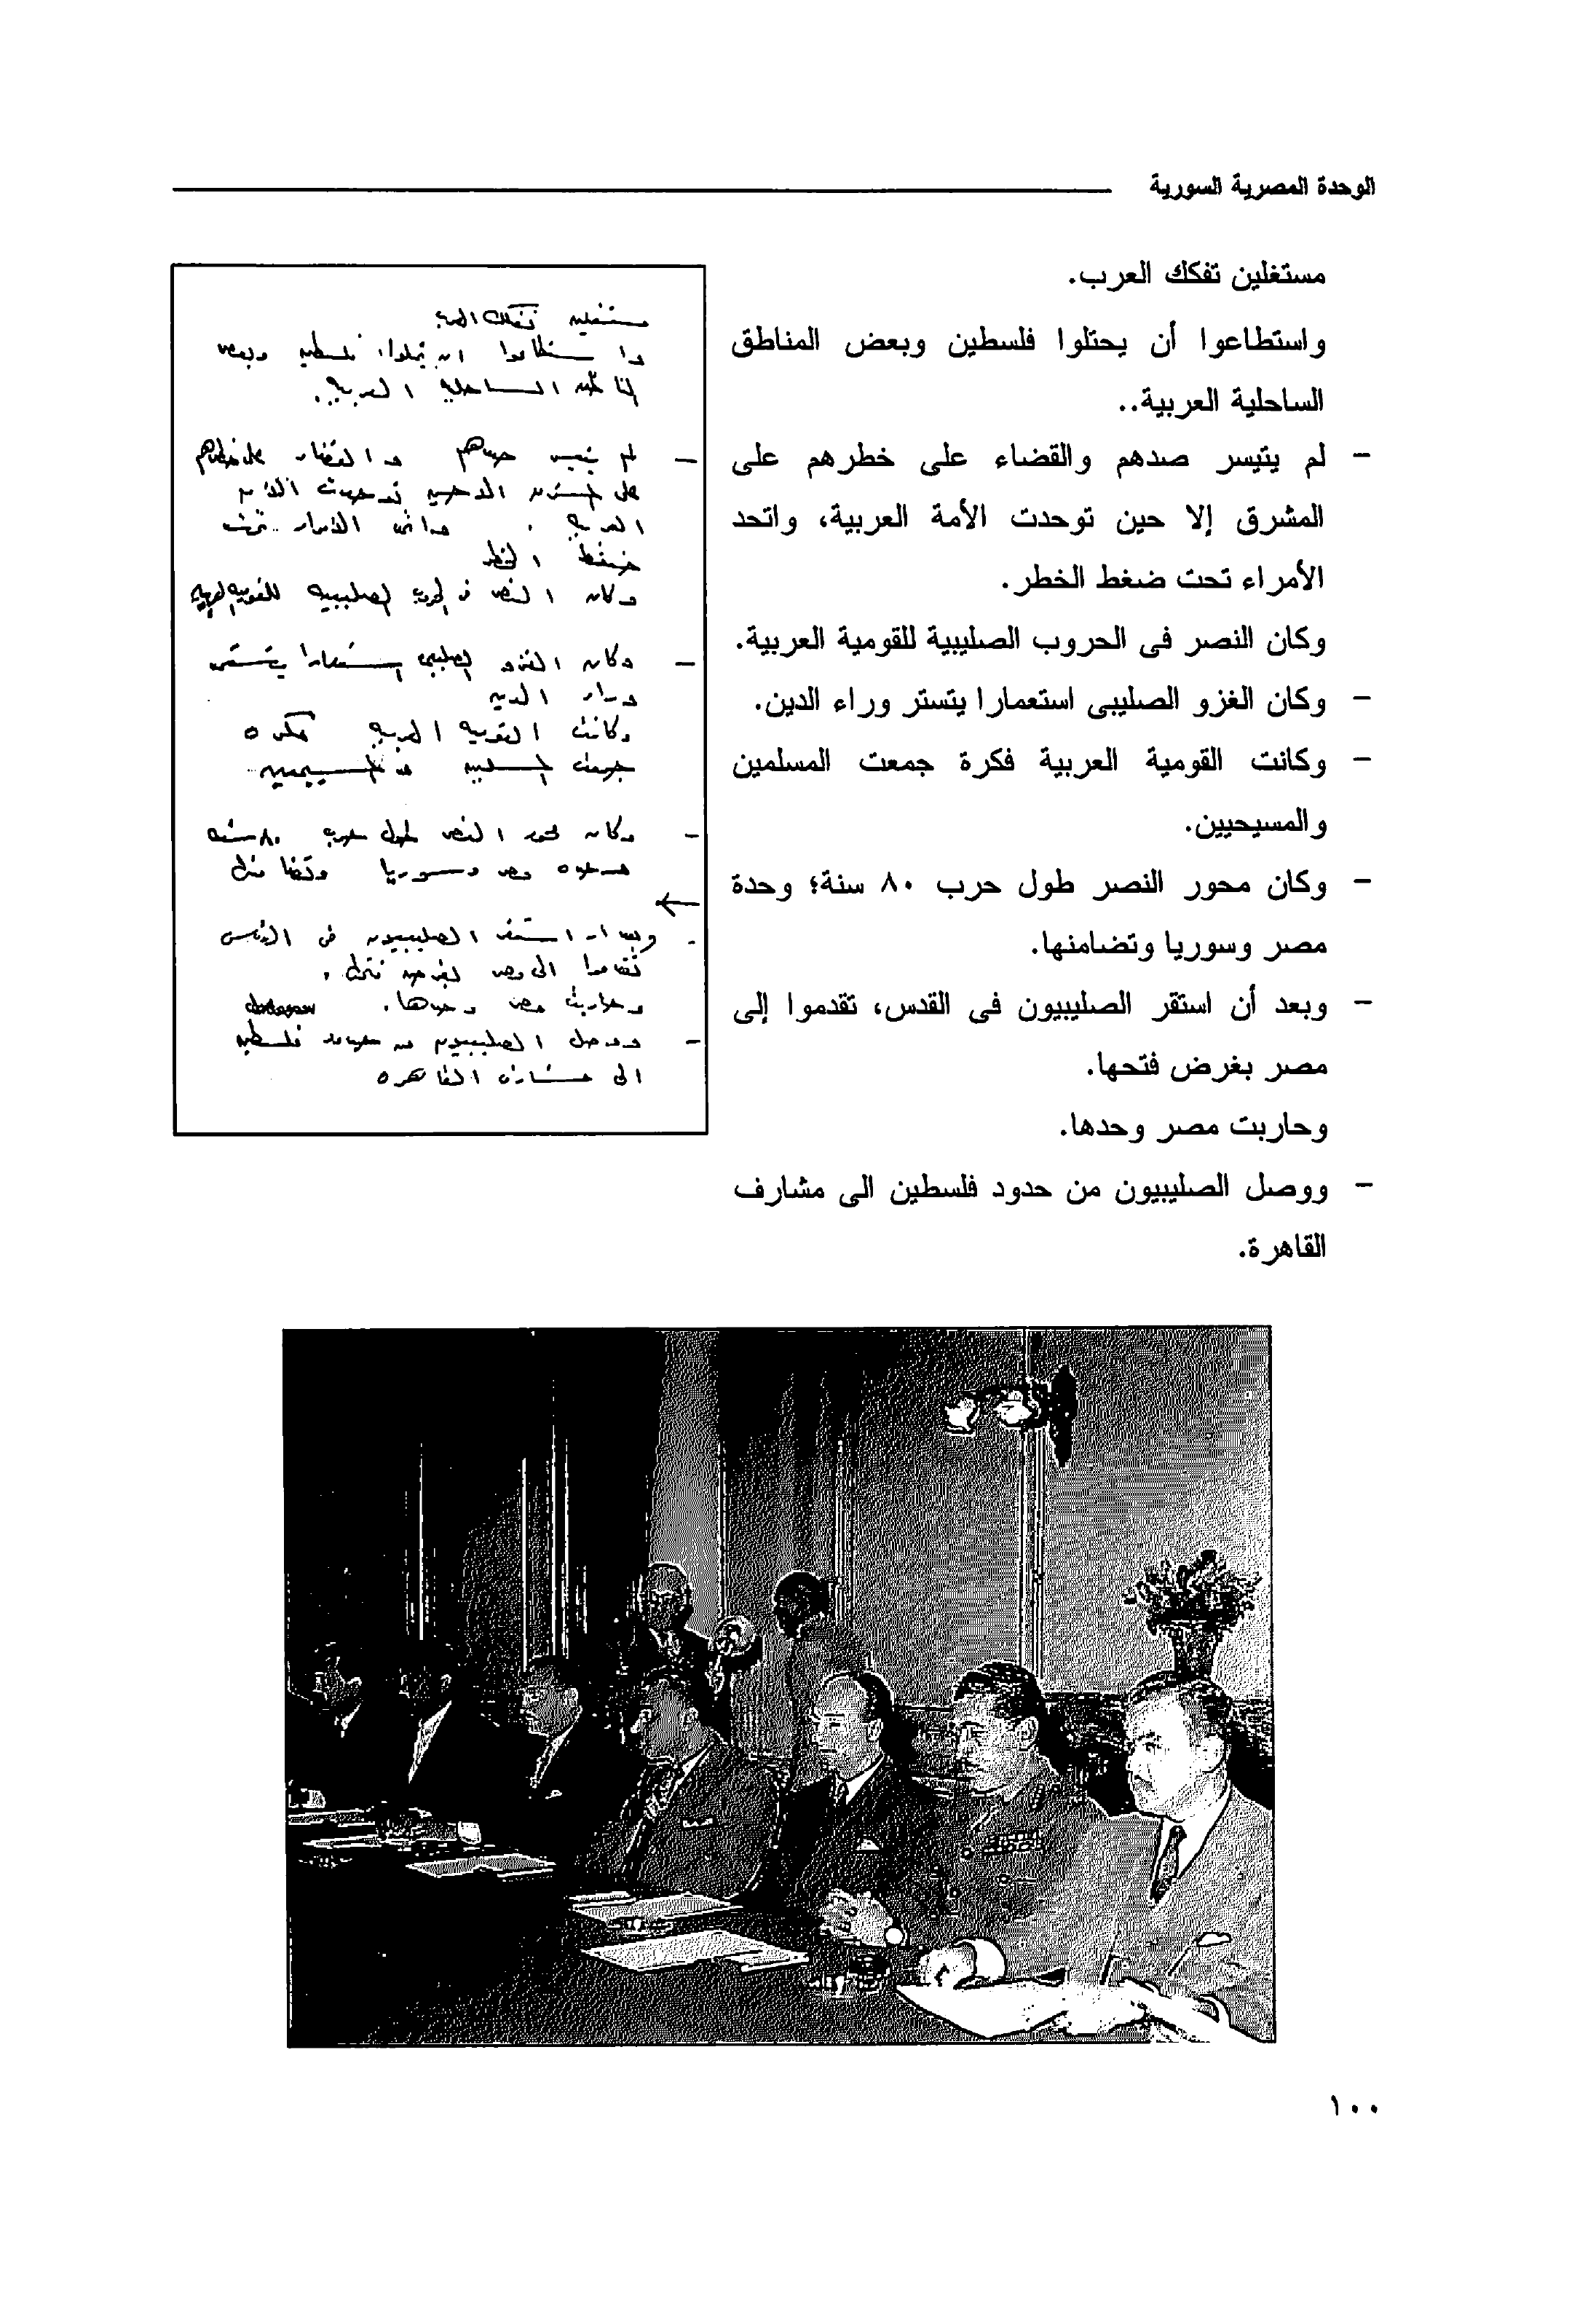 الوحدة المصرية السورية
مستغلين تفكك العرب.
واستطاعوا أن يحتلوا فلسطين وبعض المناطق
الساحلية العربية..
- لم يتيسر صدهم والقضاء على خطرهم على
المشرق إلا حين توحدت الأمة العربية، واتحد
الأمراء تحت ضغط الخطر.
وكان النصر فى الحروب الصليبية للقومية العربية.
- وكان الغزو الصليبى استعمارا يتستر وراء الدين.
- وكانت القومية العربية فكرة جمعت المسلمين
والمسيحيين.
- وكان محور النصر طول حرب ٨٠ سنة؛ وحدة
مصر وسوريا وتضامنها.
- وبعد أن استقر الصليبيون فى القدس، تقدموا إلى
مصر بغرض فتحها.
وحاربت مصر وحدها.
- ووصل الصليبيون من حدود فلسطين الى مشارف
القاهرة.
واستطاعوا ان يحتلوا فلسطين وبعض
المناطق الساحلية العربية.
- لم يتيسر صدهم والقضاء على خطرهم
ضغط الخطر
وكان النصر فى الحروب الصليبية للقومية العربية
- وكان الغزو الصليبى استعمارا يتستر
وراء الدين
وكانت القومية العربية فكره
جمعت المسلمين والمسيحيين
- وكان محور النصر طول حرب ٨٠ سنه
وحده مصر وسوريا وتضامنها
- وبعد ان استقر الصليبيون فى القدس
تقدموا الى مصر بغرض فتحها.
وحاربت مصر وحدها.
- ووصل الصليبيون من حدود فلسطين
الى مشارف القاهره
١٠٠